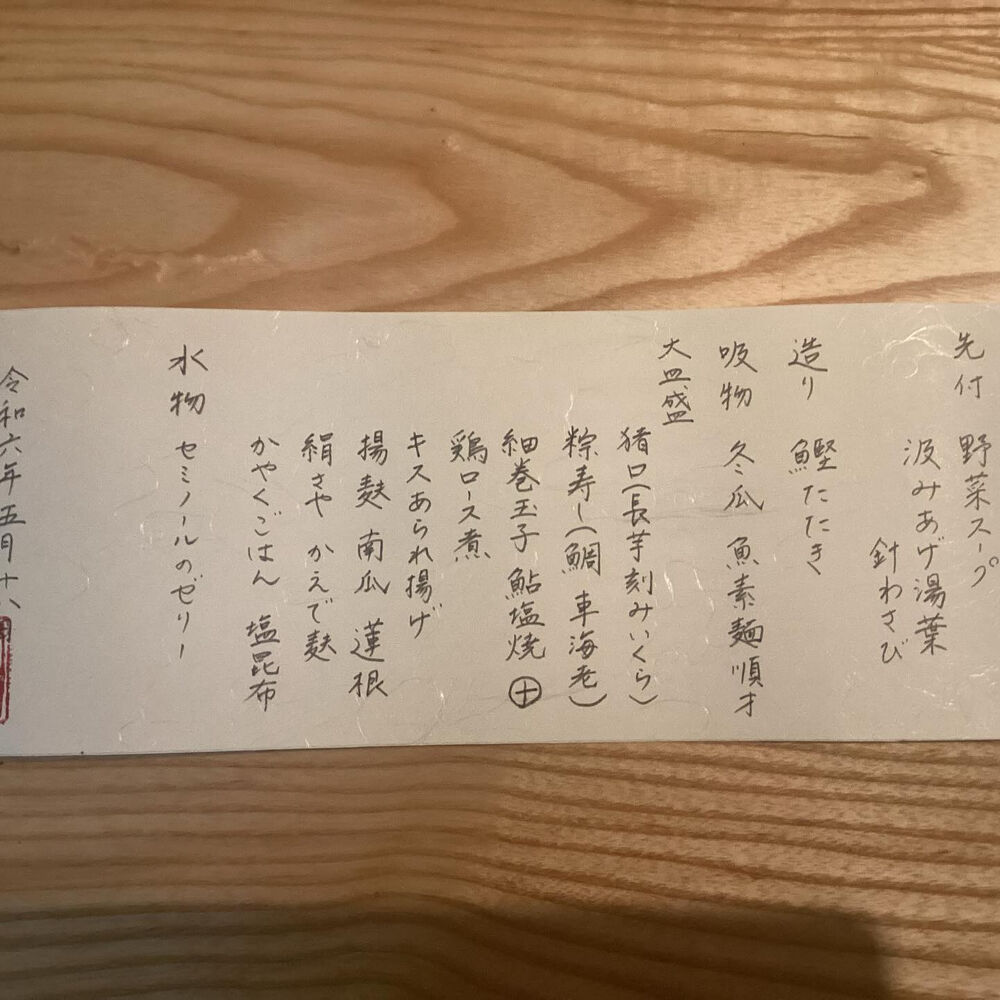 先付 野菜スープ
汲みあげ湯葉
針わさび
造り 鰹たたき
吸物 冬瓜 魚素麺 順才
大皿盛
猪口(長芋刻みいくら)
粽寿し(鯛 車海老)
細巻玉子 鮎塩焼 ㊉
鶏ロース煮
キスあられ揚げ
揚麩 南瓜 蓮根
絹さや かえで麩
かやくごはん 塩昆布
水物 セミノールのゼリー
令和六年五月十八